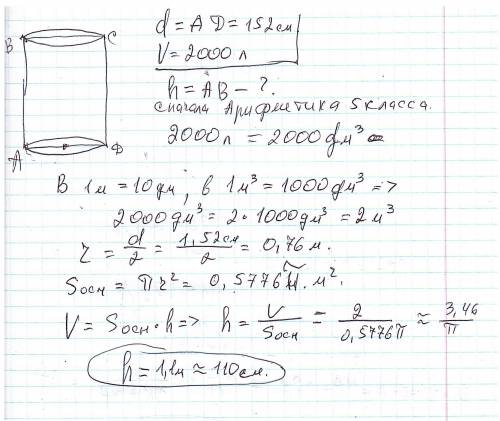 B C
A D
d = AD = 152 см
V = 2000 л
h = AB - ?
Сначала Арифметика 5 класса.
2000 л = 2000 дм³
В 1 м = 10 дм, в 1 м³ = 1000 дм³ =>
2000 дм³ = 2 · 1000 дм³ = 2 м³
r = d/2 = 1,52 см/2 = 0,76 м.
Sосн = πr² = 0,5776 π · м².
V = Sосн · h => h = V/Sосн = 2/0,5776π ≈ 3,46/π
h = 1,1 м ≈ 110 см.